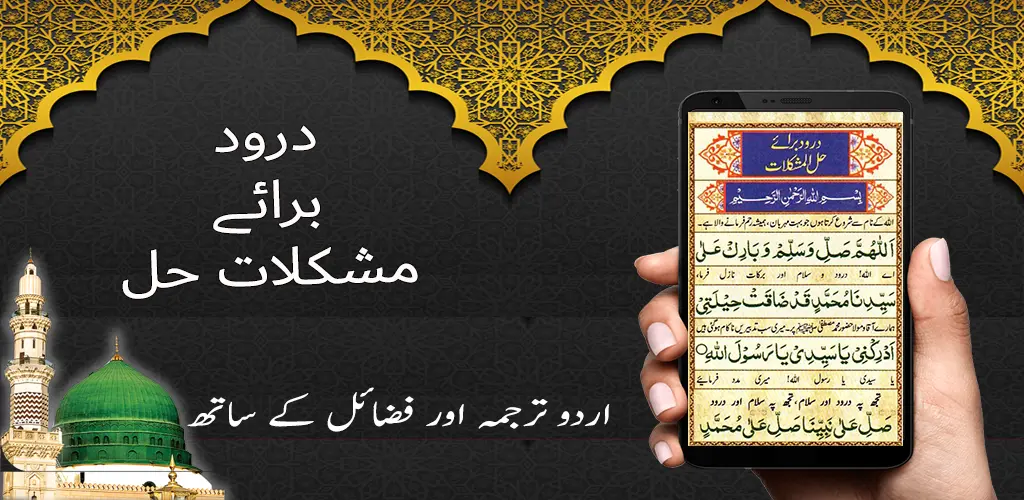 درود
برائے
مشکلات حل
اردو ترجمہ اور فضائل کے ساتھ
درود برائے
حل المشکلات
بِسْمِ اللهِ الرَّحْمٰنِ الرَّحِيْمِ
اللہ کے نام سے شروع کرتا ہوں جو بہت مہربان، ہمیشہ رحم فرمانے والا ہے۔
اَللّٰهُمَّ صَلِّ وَسَلِّمْ وَ بَارِكْ عَلٰى
اے اللہ! درود و سلام اور برکات نازل فرما،
سَيِّدِنَا مُحَمَّدٍ قَدْ ضَاقَتْ حِيْلَتِيْ
ہمارے آقا و مولا حضور محمد مصطفیٰ ﷺ پر۔ میری سب تدبیریں ناکام ہوگئی ہیں
اَدْرِكْنِيْ يَا سَيِّدِيْ يَا رَسُوْلَ اللهِ
یا سیدی یا رسول اللہ! میری مدد فرمایئے
تجھ پہ درود اور سلام، تجھ پہ سلام اور درود
صَلِّ عَلٰى نَبِيِّنَا صَلِّ عَلٰى مُحَمَّدٍ